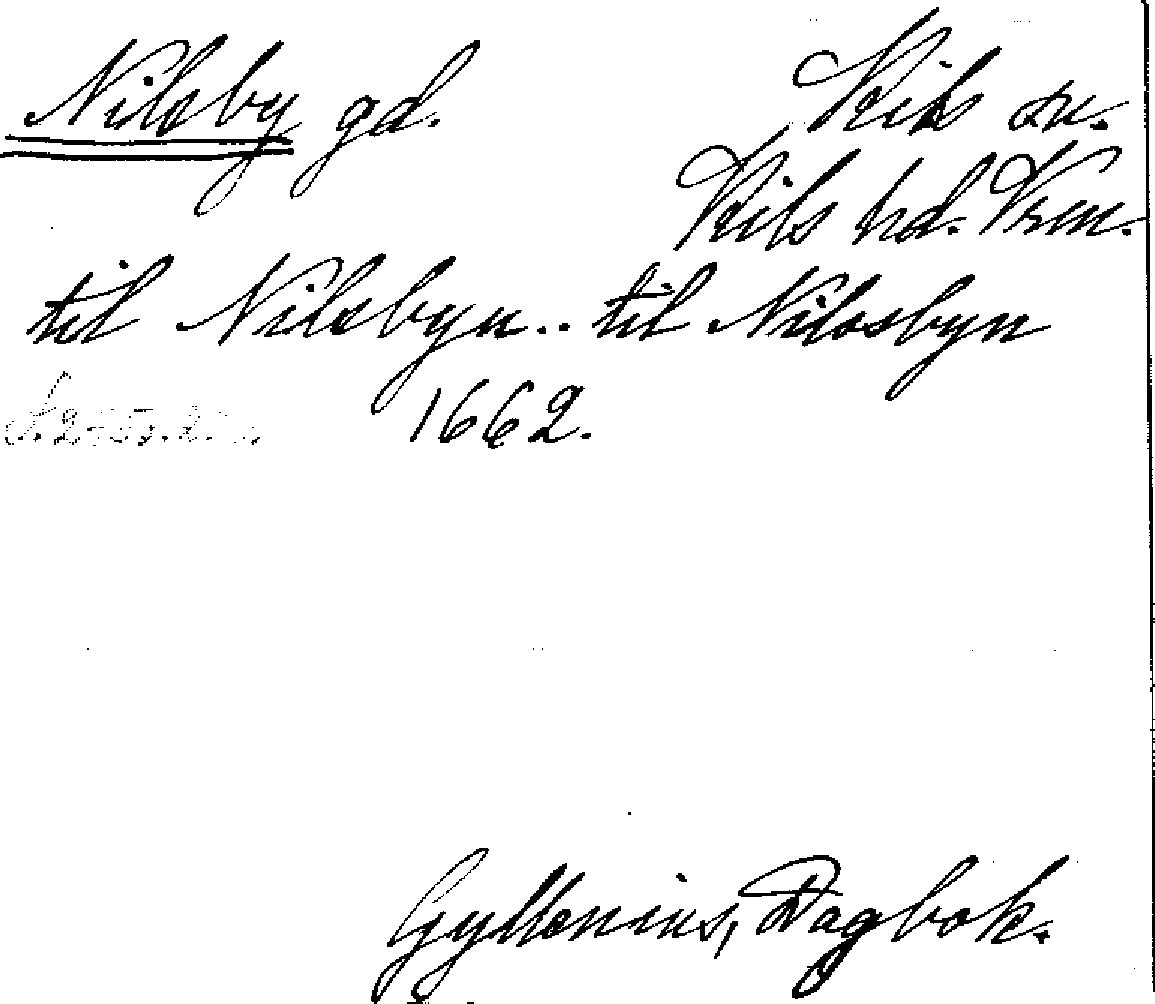 Nilsby gd. Kils sn.
Kils hd. Vrm.
til Nilsbyn.. til Nilssbyn
1662.
Gyllenius, Dagbok.